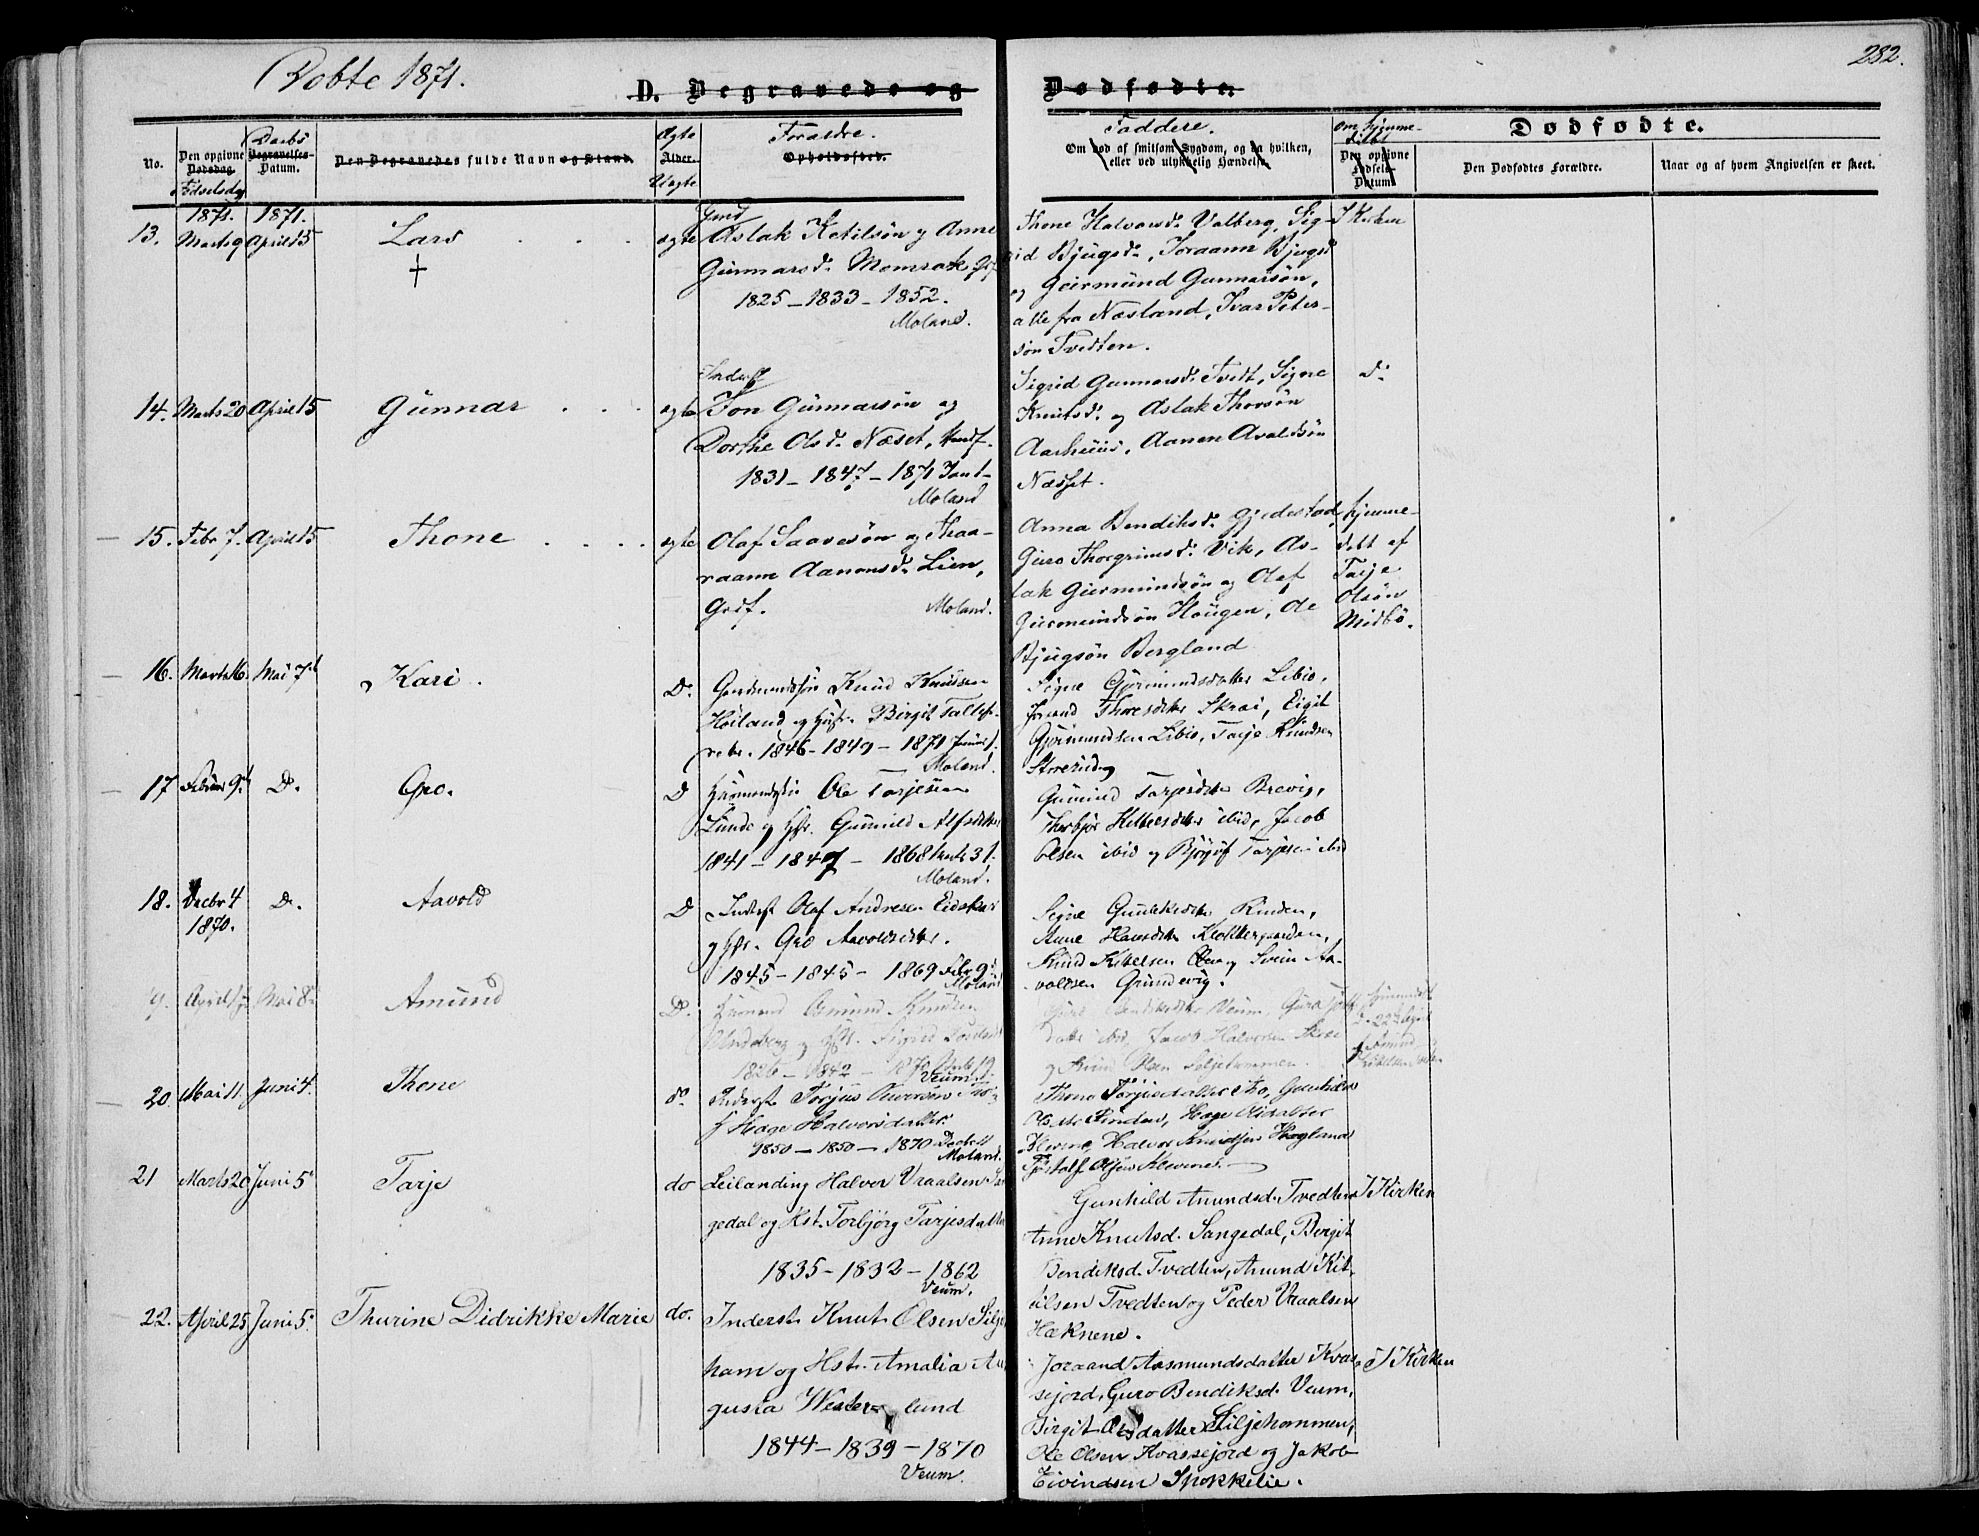 282.
Döbte 1871.
D. Begravede og Dødfødte.
No.
Den opgivne Dødsdag. Födselsdag
Daabs Begravelses-Datum.
Den Begravedes fulde Navn og Stand.
Ægte Alder. Uægte
Forældre. Opholdssted.
Faddere.
Om død af smitsom Sygdom, og da hvilken,
eller ved ulykkelig Hændelse.
om hjemme-
döbt
Den opgivne Fødsels-Datum.
Dødfødte.
Den Dødfødtes Forældre.
Naar og af hvem Angivelsen er skeet.
1871. 1871.
13. Marts 9 April 15 Lars ægte
Aslak Ketilsön og Anne
Gunnarsd. Momrak
1825 – 1833 – 1852.
Moland.
Thone Halvorsd. Valberg, Sig-
rid Bjugsd., Joraann Bjugsd
og Geirmund Gunnarsön,
alle fra Næsland, Ivar Peter-
sön Tvedten.
I Kirken
14. Marts 20 April 15 Gunnar ægte
Inderst
Jon Gunnarsön og
Dorthe Olsd. Næset,
1831 – 1847 – 1871
Moland
Sigrid Gunnarsd. Tvedt, Signe
Knutsd. og Aslak Thorsön
Aarhuus, Aanen Avaldsön
Næset.
D.
15. Febr 7. April 15 Thone ægte
Olaf Saavesön og Thaa-
raann Aanonsd. Lien,
Moland.
Anna Bendiksd. Gjedestad,
Guro Thorgrimsd. Vik, As-
lak Giermundsön og Olaf
Giermundsön Haugen, Ole
Bjugsön Bergland
hjemme-
döbt af
Tarje
Olsön
Midbö.
16. Marts 16. Mai 7d Kari. D.
Gaardmandssön Knud Knudsen
Höiland og Hstr. Birgit Tallef-
1846 – 1849 – 1871
Moland.
Signe Gjermundsdatter Libio,
Thoresdatter Skrai, Eigil
Gjermundsen Libio, Tarje Knudsen
17 Februar 9d D. Gro. D
Ole Tarjesen
Lunde og Hstr. Gunild Alfsdatter
1841 – 1847 – 1868 31.
Moland.
Gunild Tarjesdatter Brevig,
Thorbjör Kittelsdatter ibid, Jacob
Olsen ibid og Tarjesen ibid
18. Decbr 4 D. Aavold D
1870.
Inderst Olaf Andresen Eidskar
og Hstr. Gro Aavoldsdatter.
1845 – 1845 – 1869 Febr 9d
Moland
Signe Gunleksdatter Rinden,
Anne Hansdatter Klokkergaarden,
Knud Kittelsen og Svein Aa-
voldsen Grundevig.
19. April Mai 8d Amund D.
Amund Knudsen
og Hstr. Sigrid
1826 – 1842 – 1870
Veum.
Guro Bendiksdatter Veum,
datter ibid, Jacob Halvorsen
og Olsen Siljehommen.
20. Mai 11. Juni 4. Thone do
Inderst Torjus
og Hæge Halvorsdatter
1850 – 1850 – 1870
Moland.
Thone Torjusdatter Gunhild
Hæge Olsdatter
Halvor Knudsen Haglana
21 Marts 20 Juni 5. Tarje do
Leilænding Halvor Vraalsen San-
gedal og Hst. Torbjörg Tarjesdatter
1835 – 1832 – 1862
Veum.
Gunhild Anundsd. Tvedten
Anne Knutsd. Sangedal, Bergit
Bendiksd. Tvedten, Anund Kit-
tilsen Tvedten og Peder Vraalsen
Hæknene.
I Kirken
22. April 25 Juni 5. Thurine Didrikke Marie do.
Inderst Knut Olsen Silje-
ham og Hstr. Amalia Au-
gusta Westerlund
1844 – 1839 – 1870
Veum.
Joraand Aasmundsdatter Kvas-
sejord, Guro Bendiksd. Veum,
Birgit Olsdatter Siljehommen,
Ole Olsen Kvassejord og Jakob
Eivindsen Spokkelie.
I Kirken